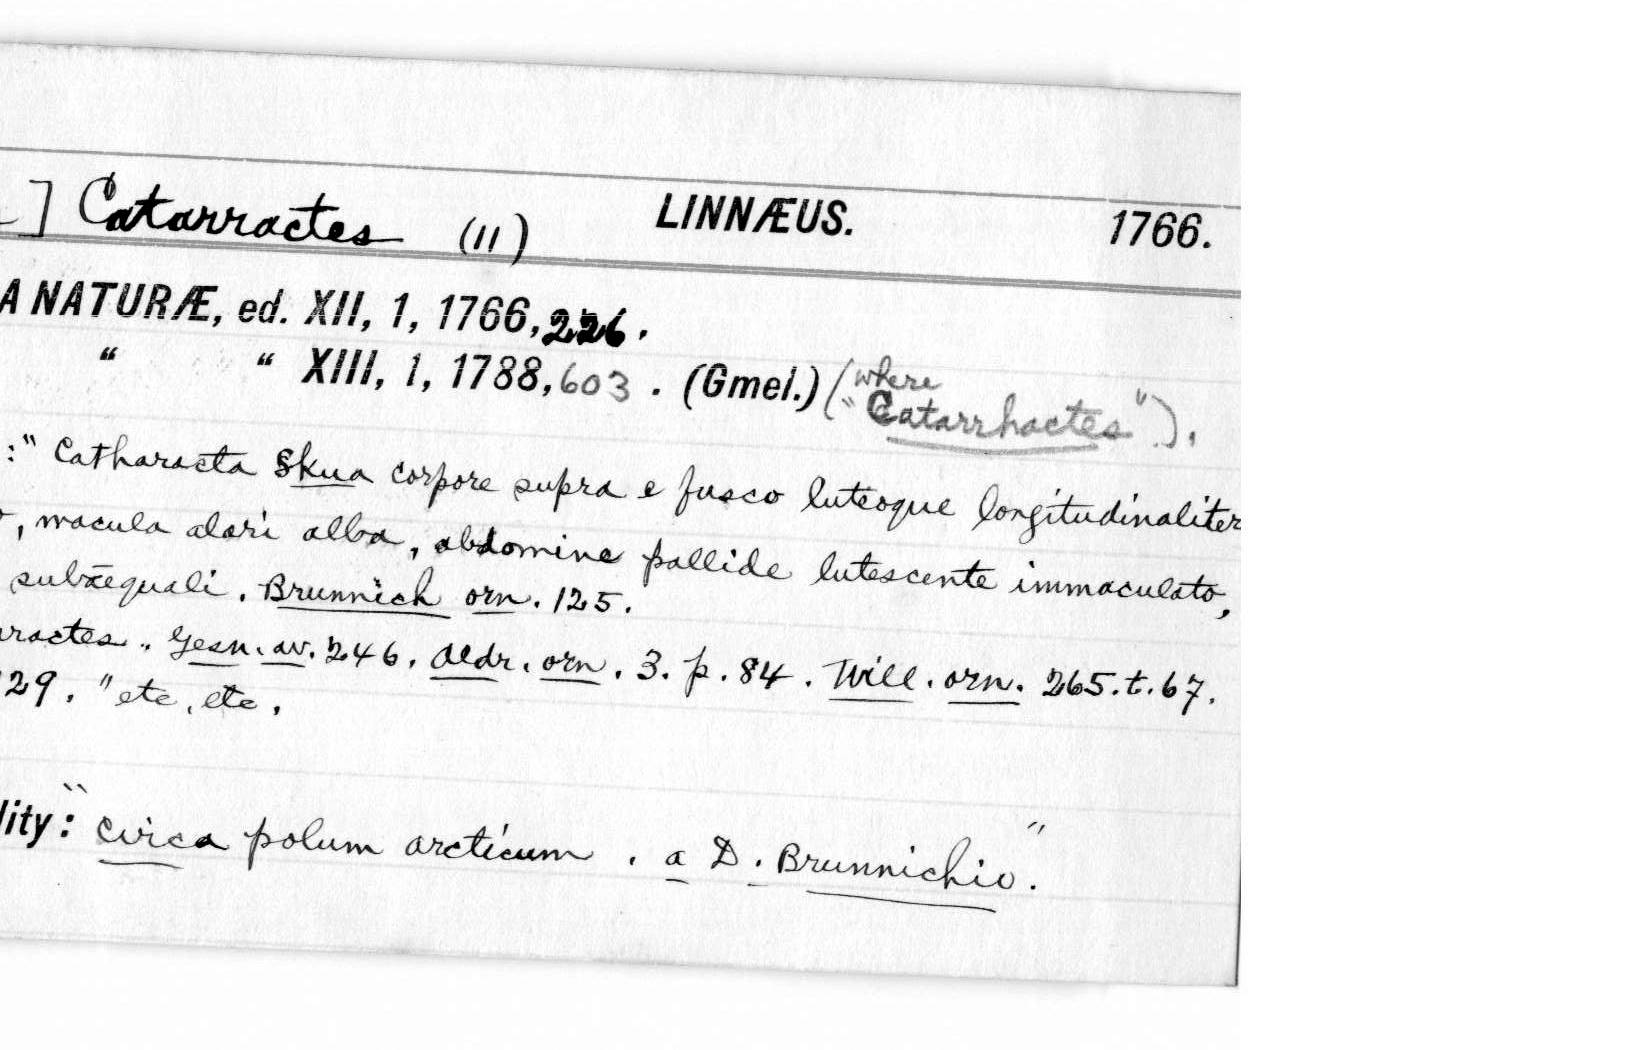 ] Catarractes (11) LINNÆUS. 1766.
A NATURÆ, ed. XII, 1, 1766, 226.
" " XIII, 1, 1788, 603. (Gmel.) (where "Catarrhactes").
:" Catharacta Skua corpore supra e fusco luteoque longitudinaliter
, macula alari alba, abdomine pallide lutescente immaculato,
subæquali. Brunnich orn. 125.
ractes. Gesn. av. 246. Aldr. orn. 3. p. 84. Will. orn. 265. t. 67.
29." etc, etc.
lity: "circa polum arcticum. a D. Brunnichio."